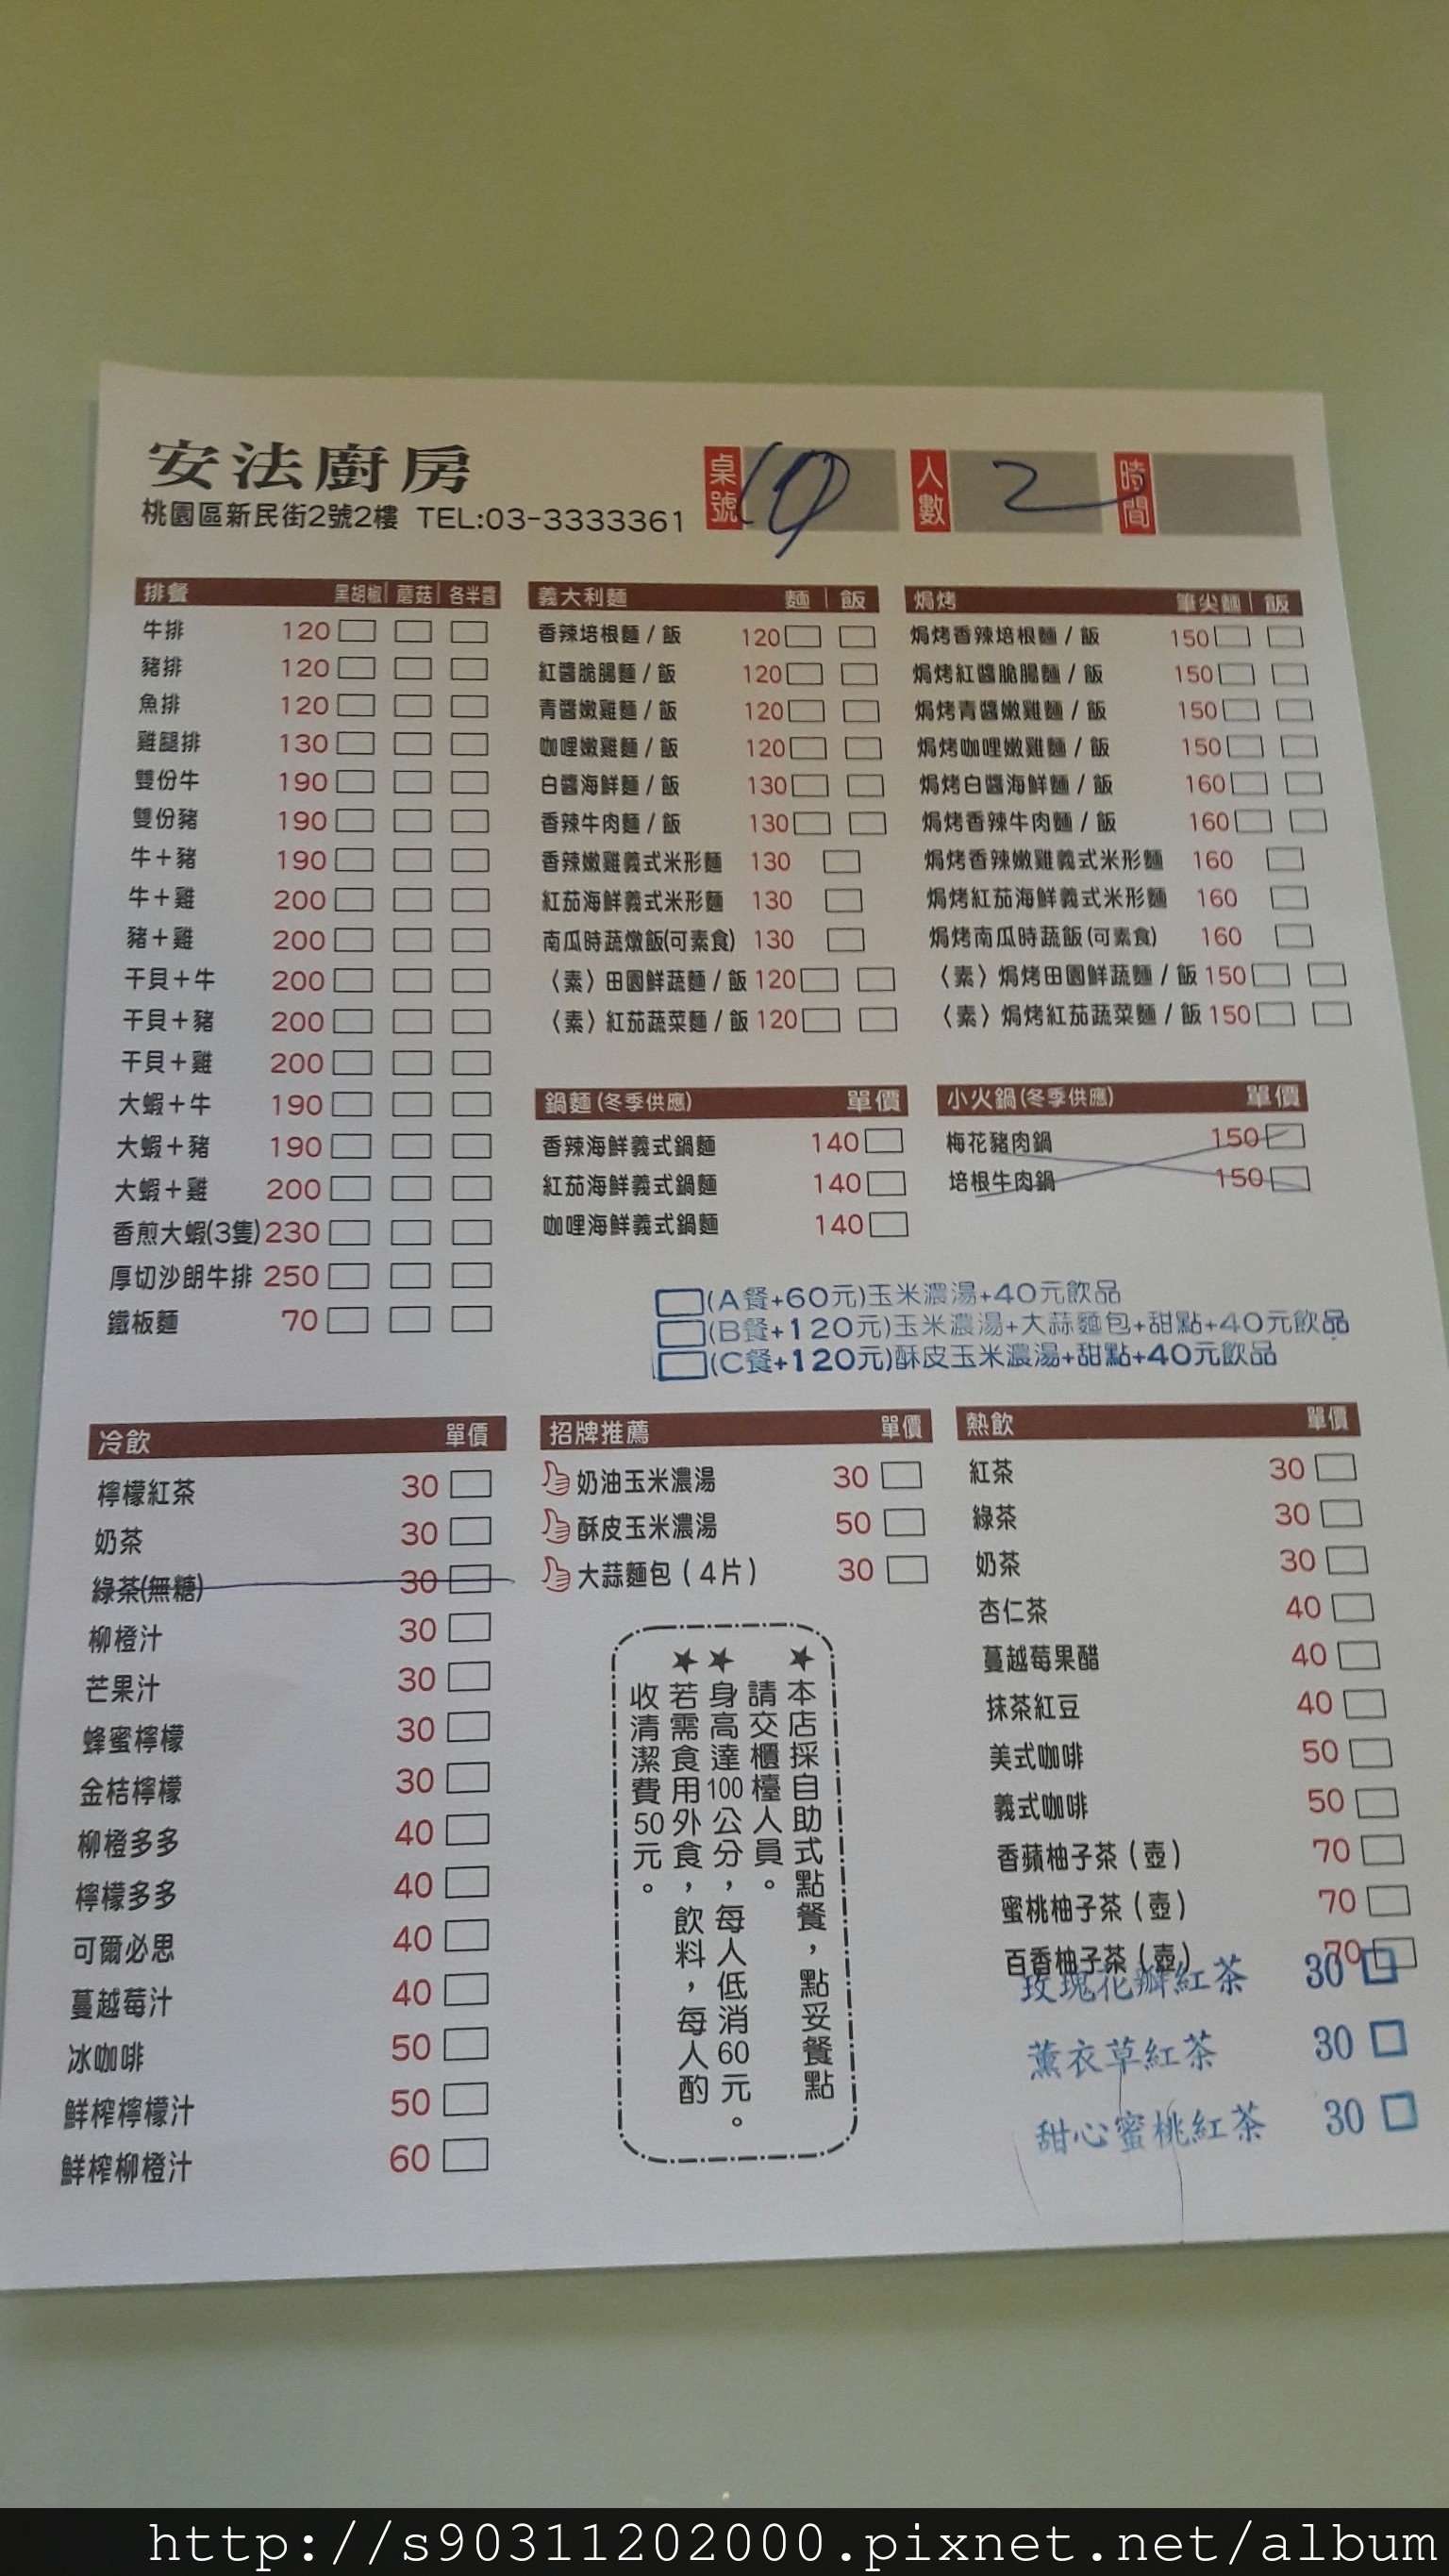 安法廚房
桃園區新民街2號2樓 TEL:03-3333361
桌號 10 人數 2 時間
排餐 黑胡椒 | 蘑菇 | 各半醬
牛排 120
豬排 120
魚排 120
雞腿排 130
雙份牛 190
雙份豬 190
牛+豬 190
牛+雞 200
豬+雞 200
干貝+牛 200
干貝+豬 200
干貝+雞 200
大蝦+牛 190
大蝦+豬 190
大蝦+雞 200
香煎大蝦(3隻) 230
厚切沙朗牛排 250
鐵板麵 70
義大利麵 麵 | 飯
香辣培根麵/飯 120
紅醬脆腸麵/飯 120
青醬嫩雞麵/飯 120
咖哩嫩雞麵/飯 120
白醬海鮮麵/飯 130
香辣牛肉麵/飯 130
香辣嫩雞義式米形麵 130
紅茄海鮮義式米形麵 130
南瓜時蔬燉飯(可素食) 130
〈素〉田園鮮蔬麵/飯 120
〈素〉紅茄蔬菜麵/飯 120
焗烤 筆尖麵 | 飯
焗烤香辣培根麵/飯 150
焗烤紅醬脆腸麵/飯 150
焗烤青醬嫩雞麵/飯 150
焗烤咖哩嫩雞麵/飯 150
焗烤白醬海鮮麵/飯 160
焗烤香辣牛肉麵/飯 160
焗烤香辣嫩雞義式米形麵 160
焗烤紅茄海鮮義式米形麵 160
焗烤南瓜時蔬飯(可素食) 160
〈素〉焗烤田園鮮蔬麵/飯 150
〈素〉焗烤紅茄蔬菜麵/飯 150
鍋麵(冬季供應) 單價
香辣海鮮義式鍋麵 140
紅茄海鮮義式鍋麵 140
咖哩海鮮義式鍋麵 140
小火鍋(冬季供應) 單價
梅花豬肉鍋 150
培根牛肉鍋 150
(A餐+60元)玉米濃湯+40元飲品
(B餐+120元)玉米濃湯+大蒜麵包+甜點+40元飲品
(C餐+120元)酥皮玉米濃湯+甜點+40元飲品
冷飲 單價
檸檬紅茶 30
奶茶 30
綠茶(無糖) 30
柳橙汁 30
芒果汁 30
蜂蜜檸檬 30
金桔檸檬 30
柳橙多多 40
檸檬多多 40
可爾必思 40
蔓越莓汁 40
冰咖啡 50
鮮榨檸檬汁 50
鮮榨柳橙汁 60
招牌推薦 單價
奶油玉米濃湯 30
酥皮玉米濃湯 50
大蒜麵包(4片) 30
★本店採自助式點餐，點妥餐點
請交櫃檯人員。
★身高達100公分，每人低消60元。
★若需食用外食，飲料，每人酌
收清潔費50元。
熱飲 單價
紅茶 30
綠茶 30
奶茶 30
杏仁茶 40
蔓越莓果醋 40
抹茶紅豆 40
美式咖啡 50
義式咖啡 50
香蘋柚子茶(壺) 70
蜜桃柚子茶(壺) 70
百香柚子茶(壺) 70
玫瑰花瓣紅茶 30
薰衣草紅茶 30
甜心蜜桃紅茶 30
http://s90311202000.pixnet.net/album